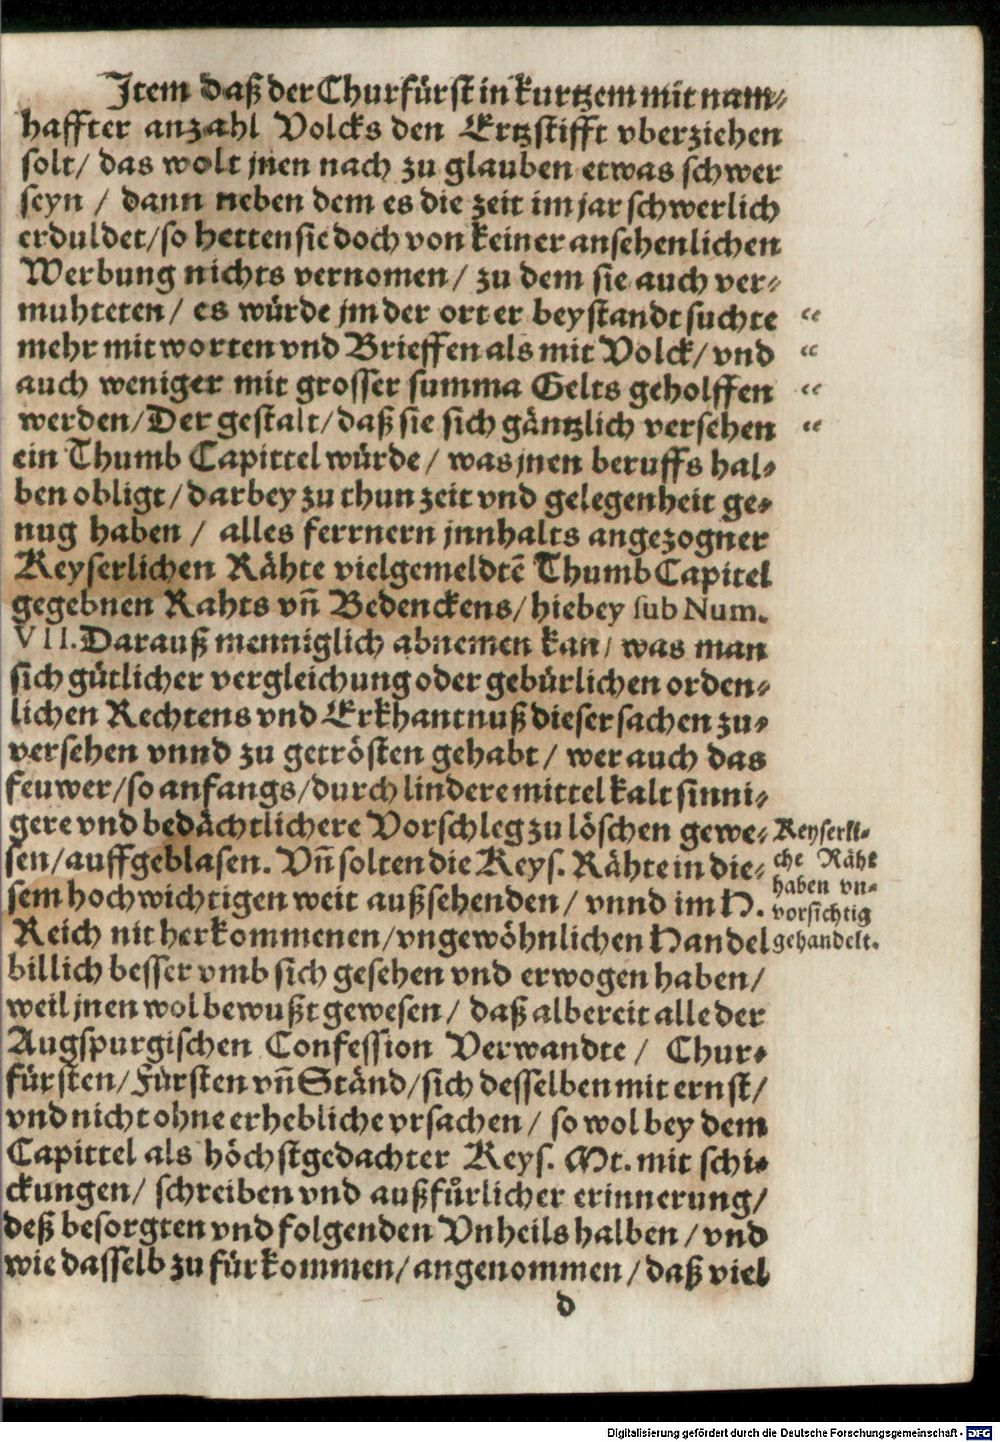 Item daß der Churfürst in kurtzem mit nam-
haffter anzahl Volcks den Ertzstifft vberziehen
solt/ das wolt jnen nach zu glauben etwas schwer
seyn / dann neben dem es die zeit im jar schwerlich
erduldet/so hetten sie doch von keiner ansehenlichen
Werbung nichts vernomen/ zu dem sie auch ver-
muhteten/ es würde jm der ort er beystandt suchte “
mehr mit worten vnd Brieffen als mit Volck/ vnd “
auch weniger mit grosser summa Gelts geholffen “
werden/Der gestalt/daß sie sich gäntzlich versehen “
ein Thumb Capittel würde/ was jnen beruffs hal-
ben obligt/darbey zu thun zeit vnd gelegenheit ge-
nug haben / alles ferrnern jnnhalts angezogner
Keyserlichen Rähte vielgemeldtē Thumb Capitel
gegebnen Rahts vñ Bedenckens/hiebey sub Num.
VII. Darauß menniglich abnemen kan/ was man
sich gütlicher vergleichung oder gebürlichen orden-
lichen Rechtens vnd Erkhantnuß dieser sachen zu-
versehen vnnd zu getrösten gehabt/ wer auch das
feuwer/so anfangs/durch lindere mittel kalt sinni-
gere vnd bedächtlichere Vorschleg zu löschen gewe-
sen/auffgeblasen. Vñ solten die Keys. Rähte in die-
sem hochwichtigen weit außsehenden/ vnnd im H.
Reich nit herkommenen/vngewöhnlichen Handel
billich besser vmb sich gesehen vnd erwogen haben/
weil jnen wol bewußt gewesen/ daß albereit alle der
Augspurgischen Confession Verwandte/ Chur-
fürsten/Fürsten vñ Ständ/sich desselben mit ernst/
vnd nicht ohne erhebliche vrsachen/ so wol bey dem
Capittel als höchstgedachter Keys. Mt. mit schi-
ckungen/ schreiben vnd außfůrlicher erinnerung/
deß besorgten vnd folgenden Vnheils halben/vnd
wie dasselb zu fürkommen/angenommen/daß viel
d
Keyserli-
che Räht
haben vn-
vorsichtig
gehandelt.
Digitalisierung gefördert durch die Deutsche Forschungsgemeinschaft - DFG